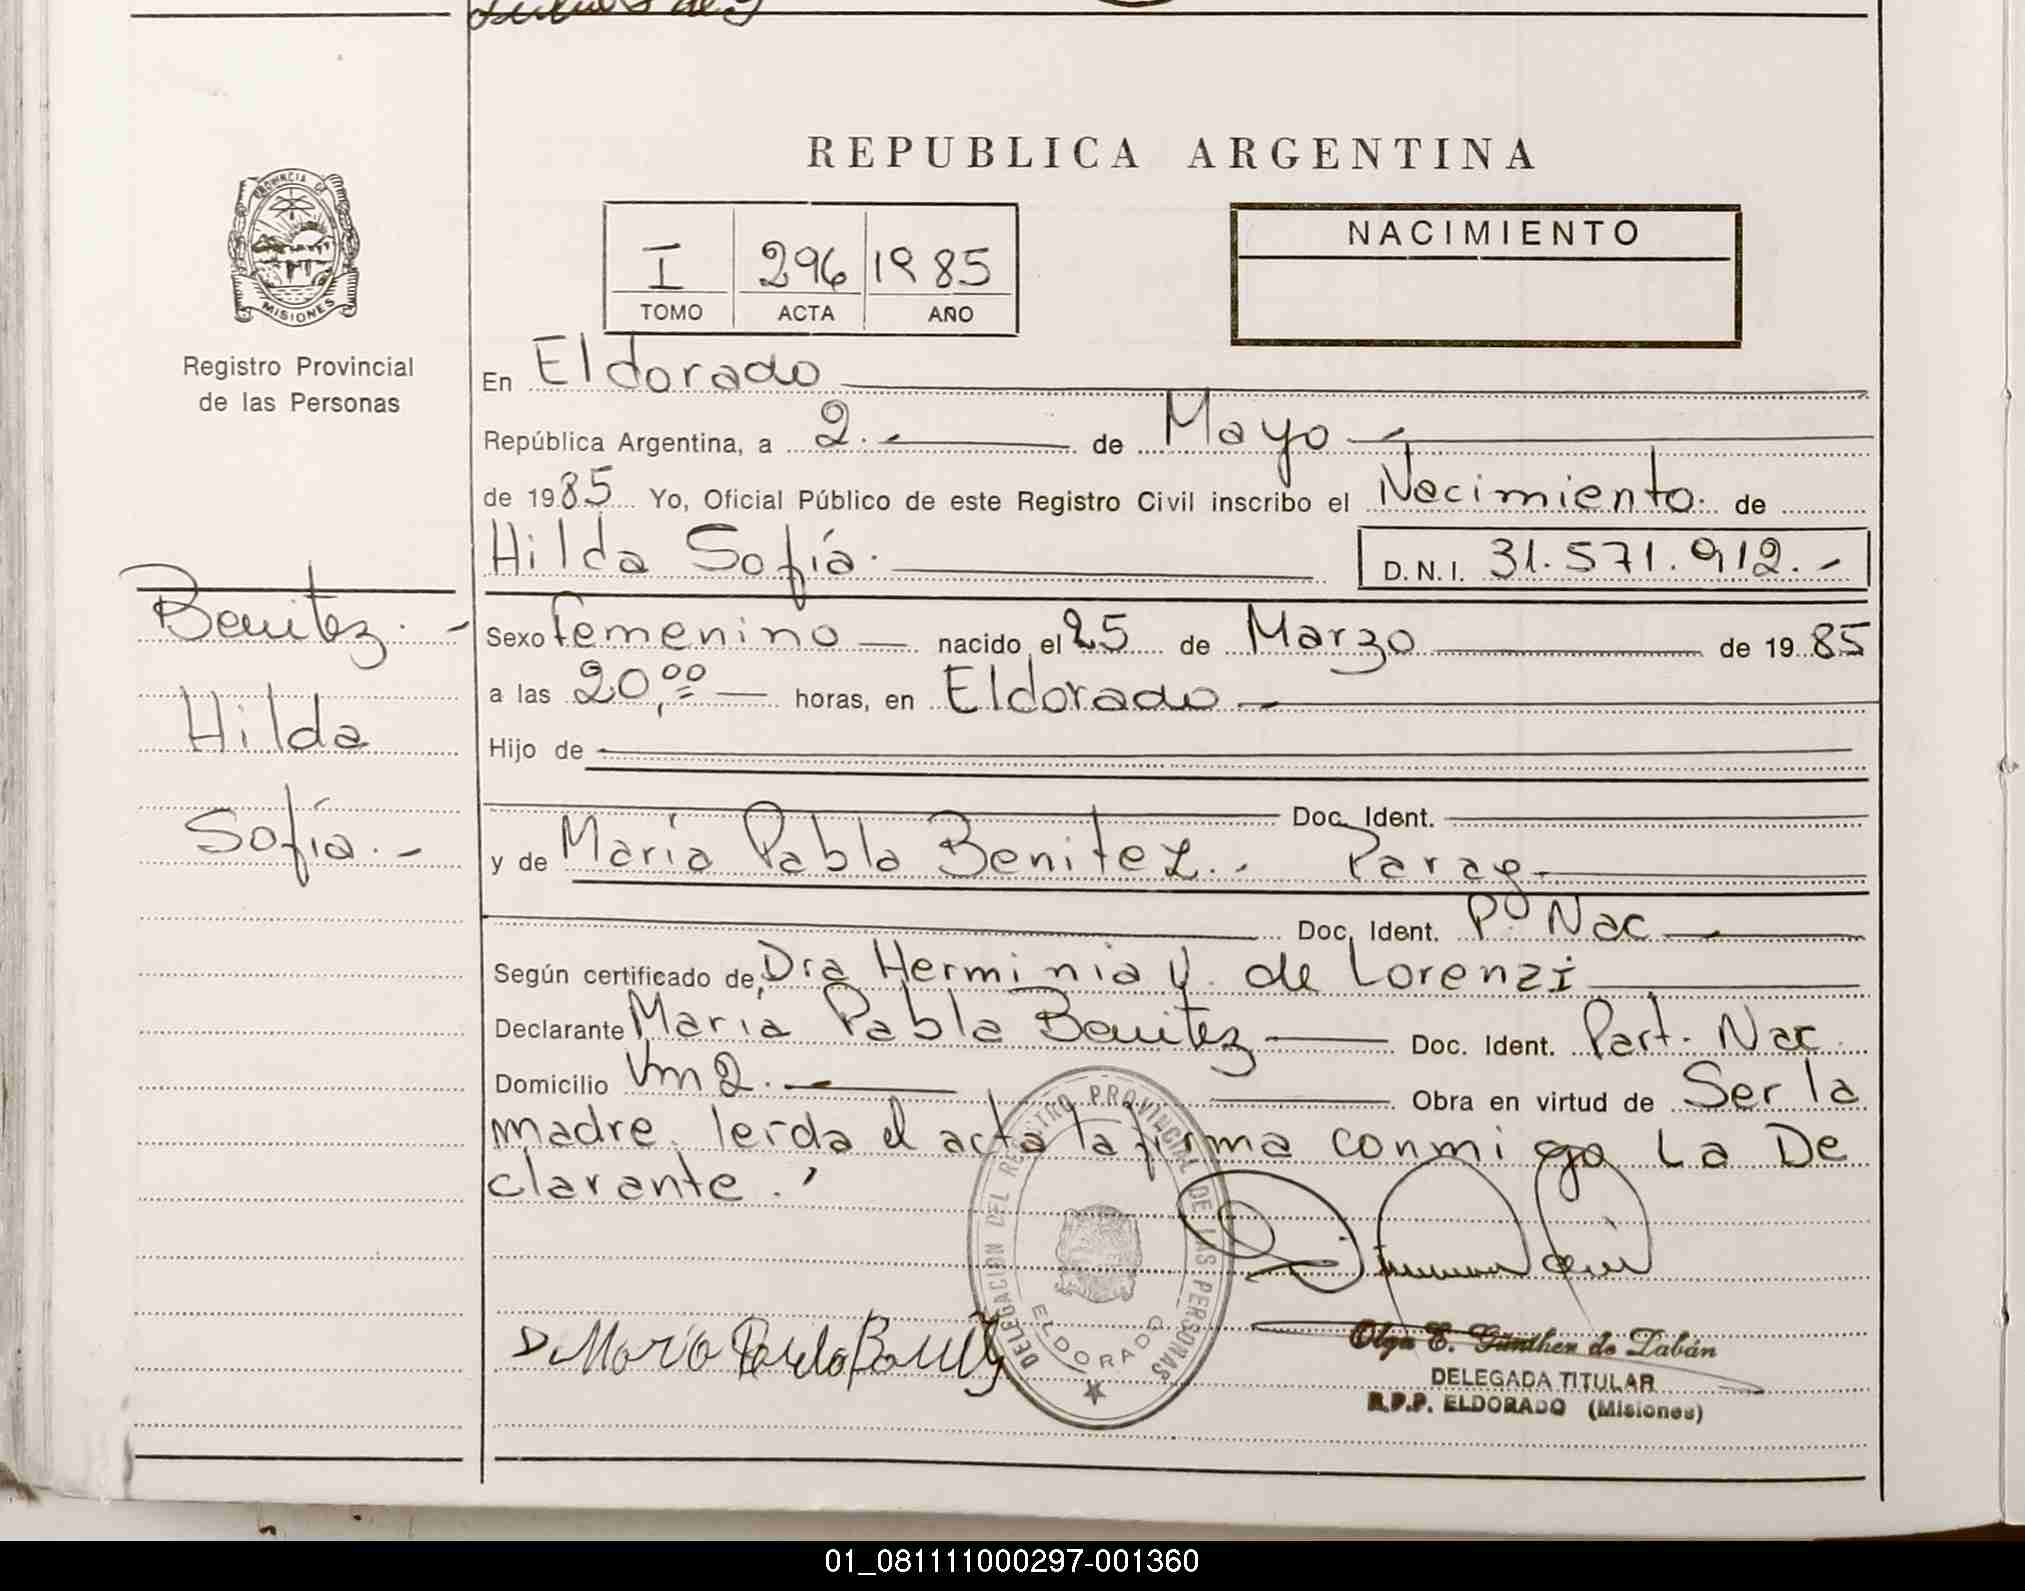 REPUBLICA ARGENTINA
PROVINCIA DE
MISIONES
Registro Provincial
de las Personas
I 296 1985
TOMO ACTA AÑO
NACIMIENTO
En Eldorado
República Argentina, a 2.- de Mayo
de 1985 Yo, Oficial Público de este Registro Civil inscribo el Nacimiento. de
Hilda Sofía. D.N.I. 31.571.912.-
Benitez.-
Hilda
Sofía.-
Sexo femenino nacido el 25 de Marzo de 1985
a las 20,00 horas, en Eldorado
Hijo de
Doc. Ident.
y de María Pabla Benitez.- Parag
Doc. Ident. Pº Nac
Según certificado de, Dra Herminia V. de Lorenzi
Declarante María Pabla Benitez Doc. Ident. Part. Nac.
Domicilio Km 2. Obra en virtud de Ser la
madre. leida el acta la firma conmigo La De
clarante.
DELEGACION DEL REGISTRO PROVINCIAL DE LAS PERSONAS
ELDORADO
Olga E. Günther de Zabán
DELEGADA TITULAR
R.P.P. ELDORADO (Misiones)
01_081111000297-001360